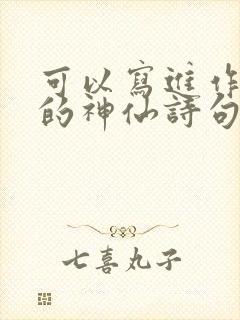 可以寫進作
的神仙詩句
七喜丸子